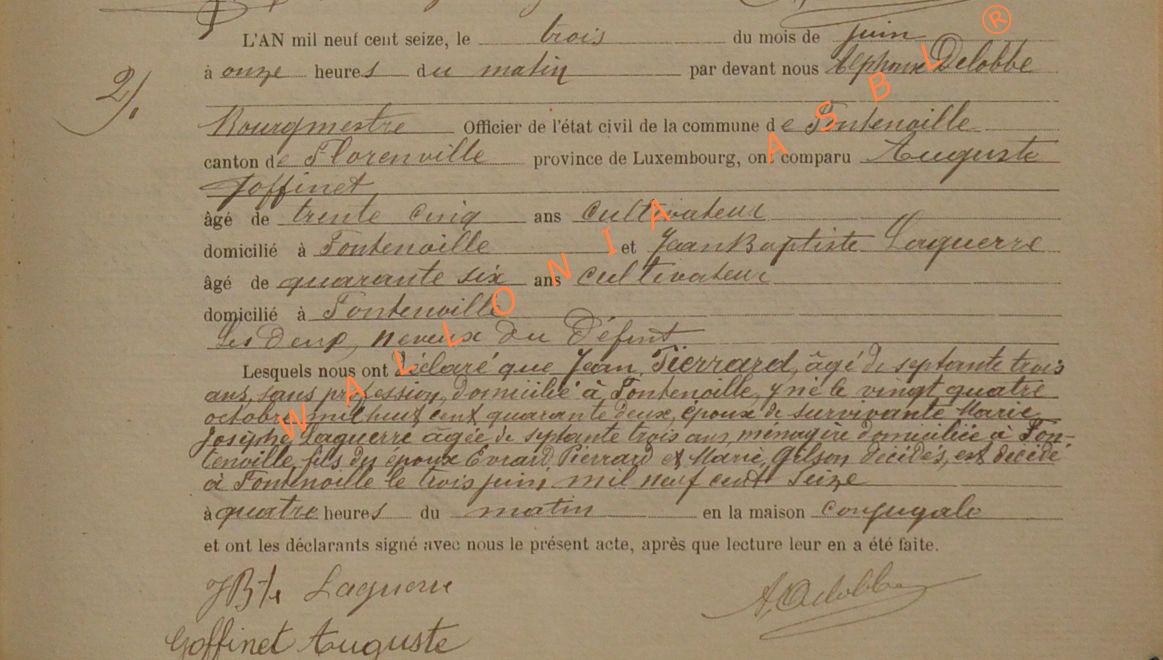 L'AN mil neuf cent seize, le trois du mois de juin
à onze heures du matin par devant nous Alphonse Delobbe
2/.
Bourgmestre Officier de l'état civil de la commune de Fontenoille
canton de Florenville province de Luxembourg, ont comparu Auguste
Goffinet
âgé de trente cinq ans cultivateur
domicilié à Fontenoille et Jean Baptiste Laguerre
âgé de quarante six ans cultivateur
domicilié à Fontenoille
Les deux neveux du Défunt
Lesquels nous ont déclaré que Jean Pierrard, âgé de septante trois
ans, sans profession, domicilié à Fontenoille, y né le vingt quatre
octobre mil huit cent quarante deux, époux de survivante Marie
Josephe Laguerre âgée de septante trois ans, ménagère domiciliée à Fon-
tenoille, fils du époux Evrard Pierrard et Marie Gilson décédés, est décédé
à Fontenoille le trois juin mil neuf cent seize
à quatre heures du matin en la maison conjugale
et ont les déclarants signé avec nous le présent acte, après que lecture leur en a été faite.
JBte Laguerre A. Delobbe
Goffinet Auguste
WALLONIA ASBL ®